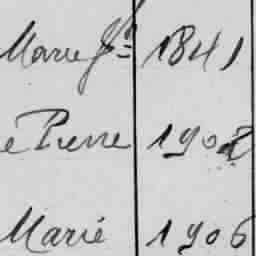 Marie Jne 1841
e Pierre 1902
Marie 1906